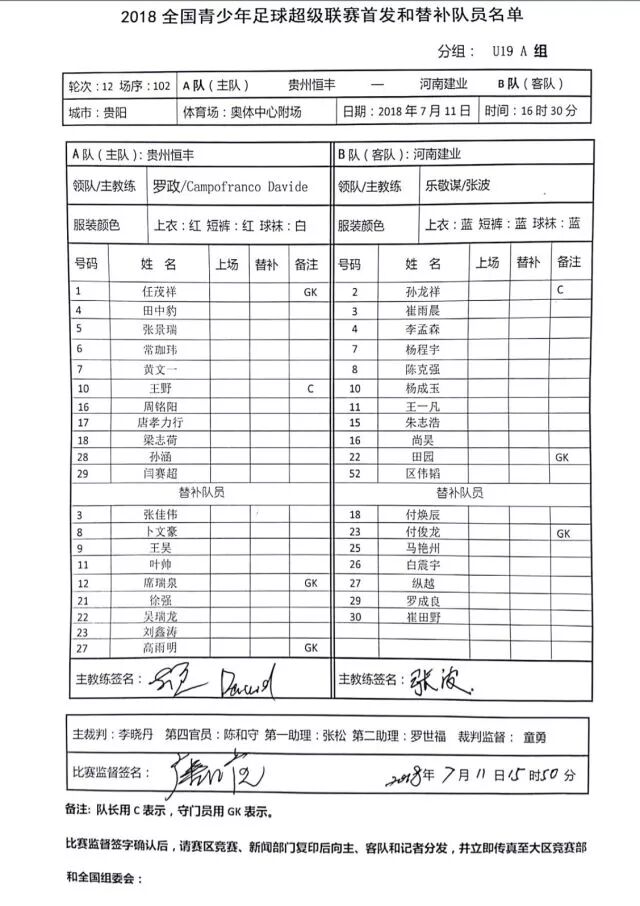 2018 全国青少年足球超级联赛首发和替补队员名单
分组： U19 A 组
轮次：12 场序：102 A 队（主队） 贵州恒丰 — 河南建业 B 队（客队）
城市：贵阳 体育场：奥体中心附场 日期：2018 年 7 月 11 日 时间：16 时 30 分
A 队（主队）：贵州恒丰 B 队（客队）：河南建业
领队/主教练 罗政/Campofranco Davide 领队/主教练 乐敬谋/张波
服装颜色 上衣：红 短裤：红 球袜：白 服装颜色 上衣：蓝 短裤：蓝 球袜：蓝
号码 姓 名 上场 替补 备注 号码 姓 名 上场 替补 备注
1 任茂祥 GK 2 孙龙祥 C
4 田中豹 3 崔雨晨
5 张景瑞 4 李孟森
6 常珈玮 7 杨程宇
7 黄文一 8 陈克强
10 王野 C 10 杨成玉
16 周铭阳 11 王一凡
17 唐孝力行 15 朱志浩
18 梁志荷 16 尚昊
28 孙涵 22 田园 GK
29 闫赛超 52 区伟韬
替补队员 替补队员
3 张佳伟 18 付焕辰
8 卜文豪 23 付俊龙 GK
9 王昊 25 马艳州
11 叶帅 26 白震宇
12 席瑞泉 GK 27 纵越
21 徐强 29 罗成良
22 吴瑞龙 30 崔田野
23 刘鑫涛
27 高雨明 GK
主教练签名： David 主教练签名：张波
主裁判：李晓丹 第四官员：陈和守 第一助理：张松 第二助理：罗世福 裁判监督： 童勇
比赛监督签名： 2018年 7 月 11 日 15 时 50 分
备注：队长用 C 表示，守门员用 GK 表示。
比赛监督签字确认后，请赛区竞赛、新闻部门复印后向主、客队和记者分发，并立即传真至大区竞赛部
和全国组委会：